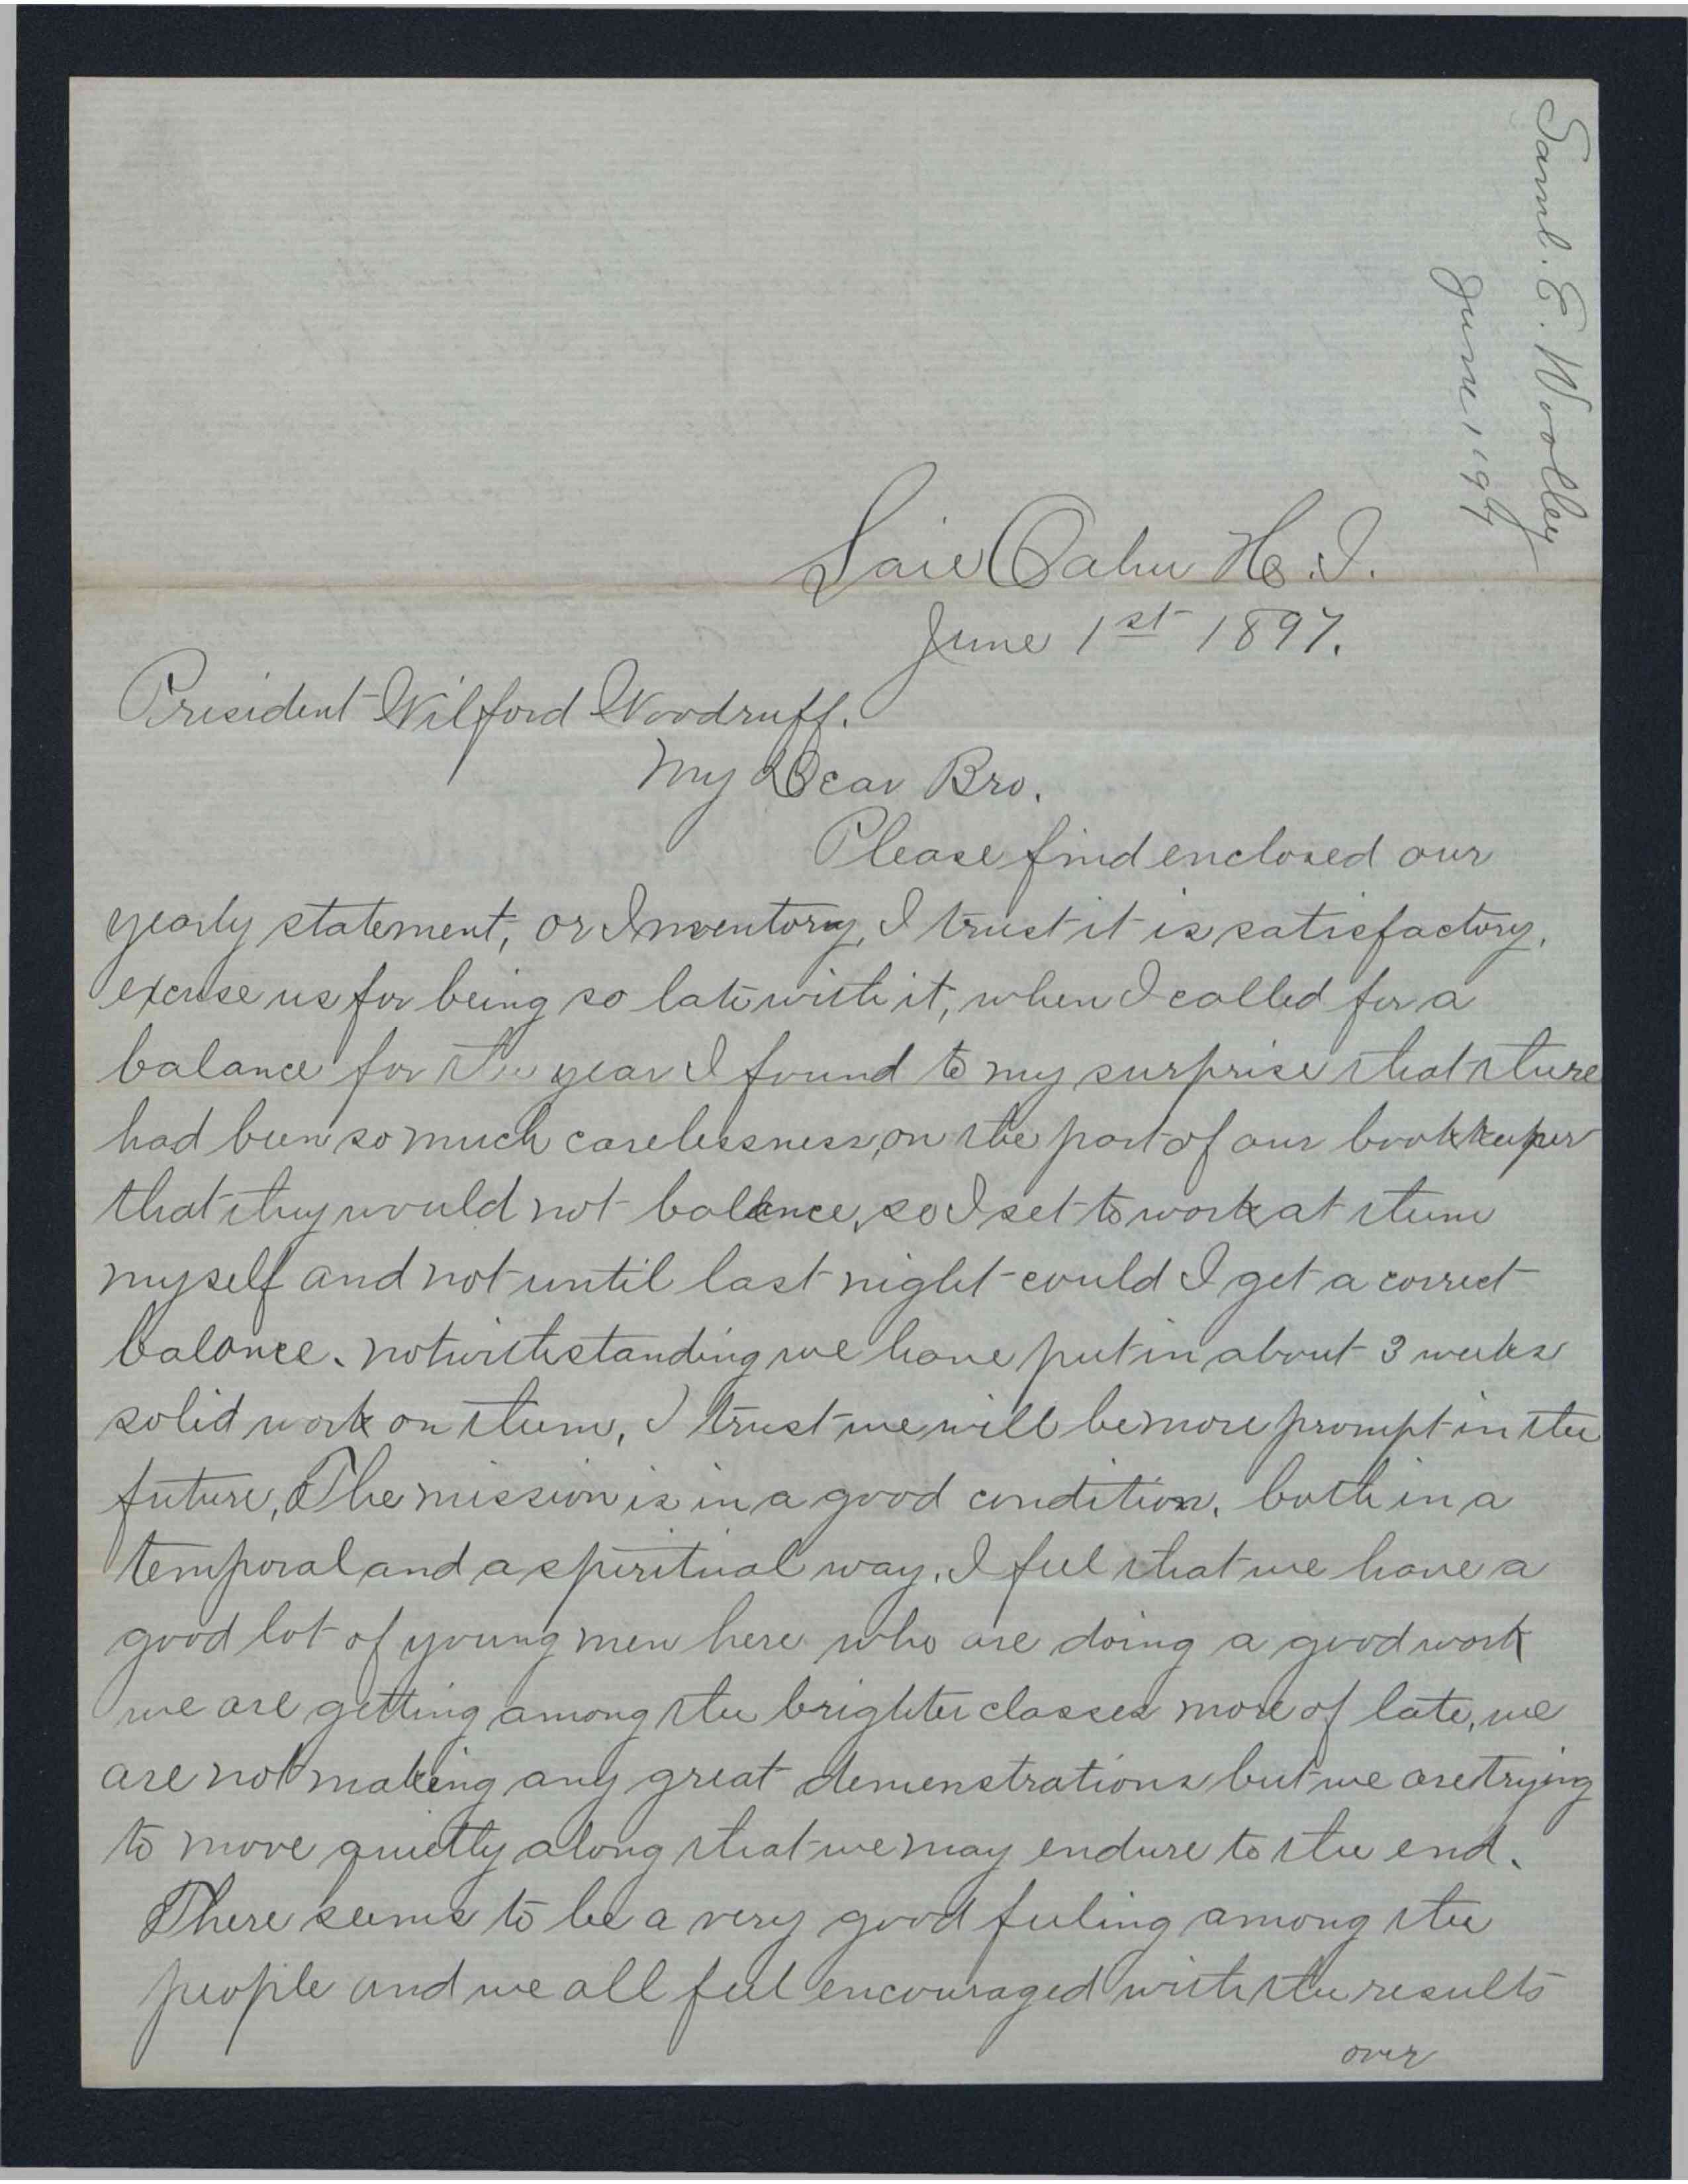 Saml. E. Woolley
June 1 '97
Laie Oahu H.I.
June 1st 1897.
President Wilford Woodruff.
My Dear Bro.
Please find enclosed our
yearly statement, or Inventory, I trust it is satisfactory,
excuse us for being so late with it, when I called for a
balance for the year I found to my surprise that there
had been so much carelessness, on the part of our bookkeeper
that they would not balance, so I set to work at them
myself and not until last night could I get a correct
balance. notwithstanding we have put in about 3 weeks
solid work on them, I trust we will be more prompt in the
future, The mission is in a good condition, both in a
temporal and a spiritual way. I feel that we have a
good lot of young men here who are doing a good work
we are getting among the brighter classes more of late, we
are not making any great demenstrations but we are trying
to move quietly along that we may endure to the end.
There seems to be a very good feeling among the
people and we all feel encouraged with the results
over